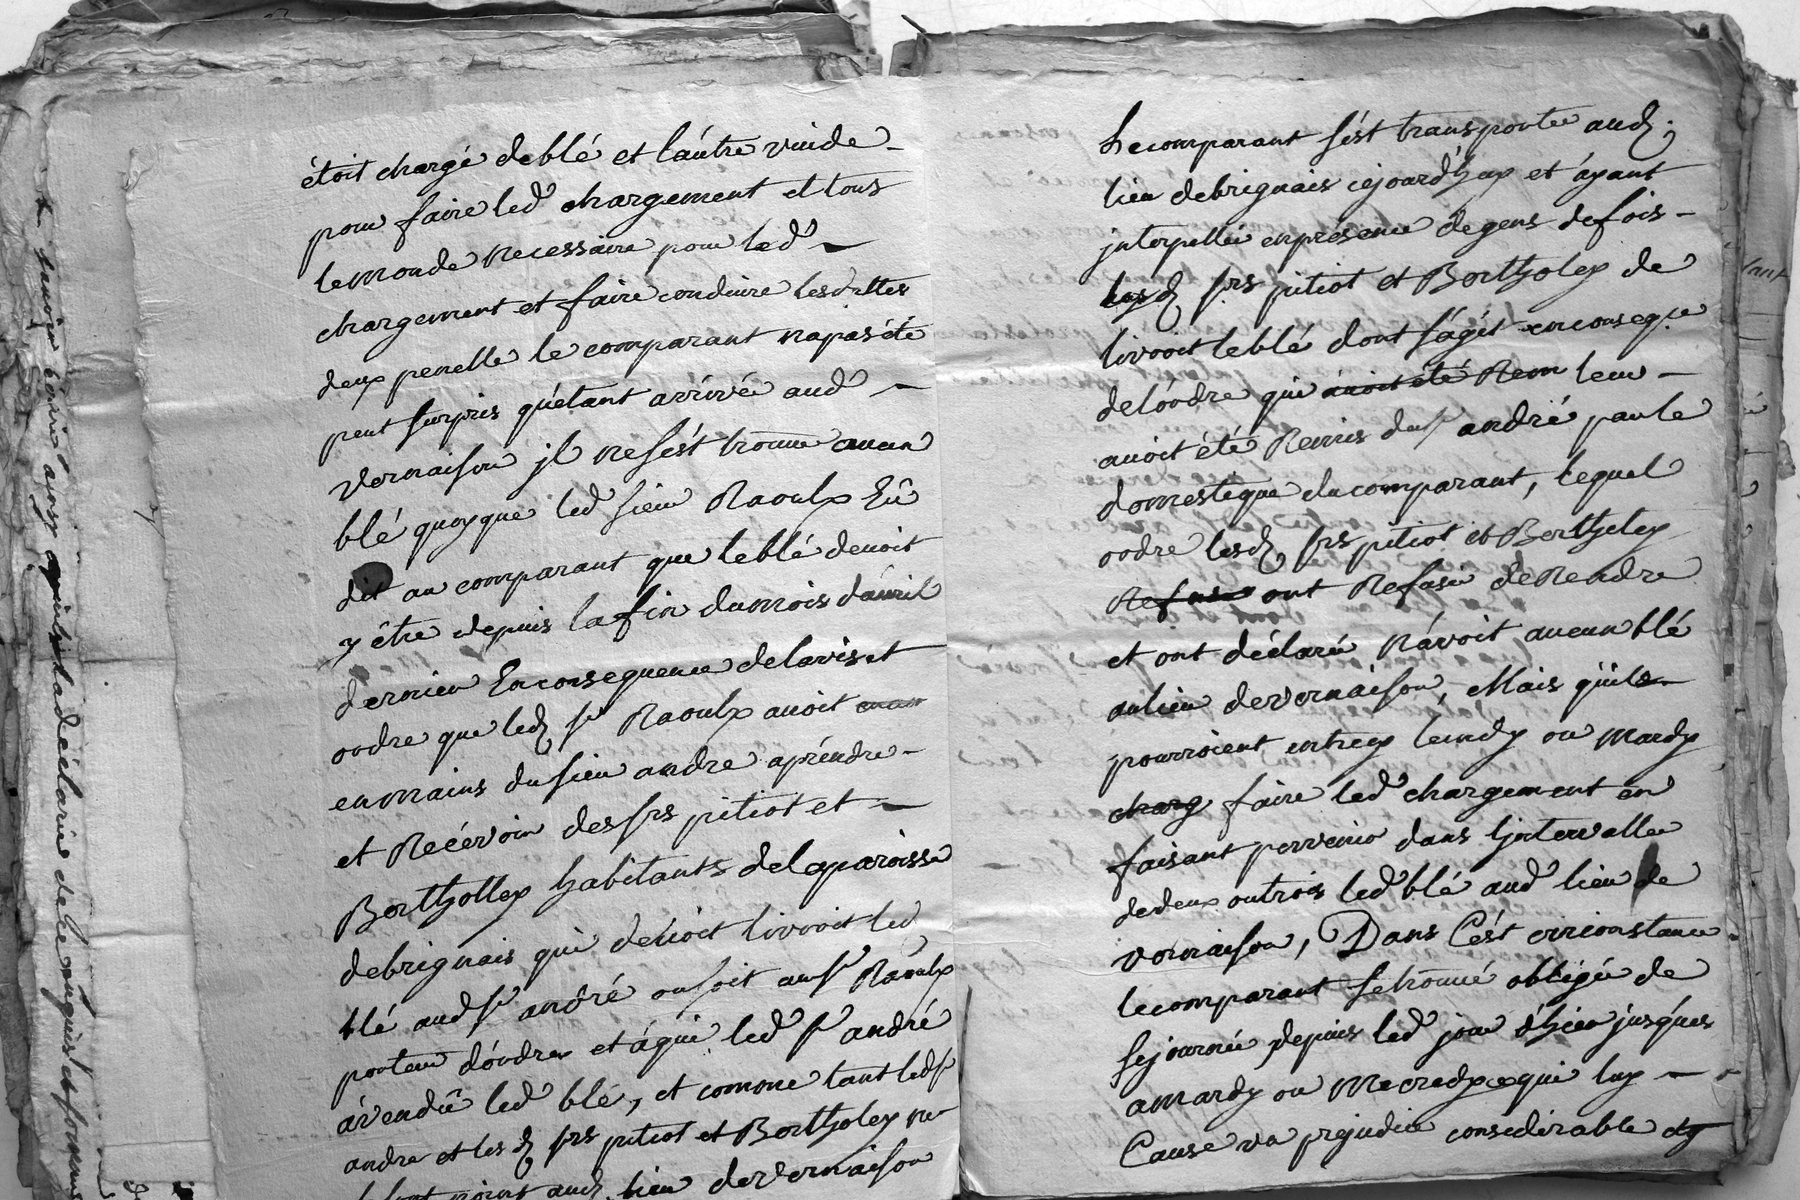 étoit chargé de blé et láutre vuide
pour faire led chargement et tous
le monde necessaire pour led
chargement et faire conduire lesdittes
deux penelle le comparant na pas été
peut surpris qu'étant arrivé aud
vernaison jl ne s'est trouvé aucun
blé quoyque led sieur Raoulx Eû
dit au comparant que le blé devoit
y être depuis la fin du mois d'avril
dernier En consequence de lavis et
ordre que led sr Raoulx avoit
en mains du sieur andre a préndre
et Recévoir des srs pitiot et
Bertholley habitants de la paroisse
de brignais qui dévoit livroit led
blé aud sr andré ou soit au sr Raoulx
porteur d'ordre et á qui led sr andré
á vendû led blé, et comme tant led sr
andre et les d srs pitiot et Bertholey ne
point aud lieu de vernaison
Le comparant s'ést transportée aud
lieu de brignais cejourd'huy et áyant
jnterpellée en présence de gens de fois
lesd srs pitiot et Bertholey de
livroit le blé dont s'ágit en conseqce
de l'órdre qui avoit été Rem leur
avoit été Remis du sr andré par le
domestique du comparant, lequel
ordre lesd srs pitiot et Bertheley
Refus ont Refusé de Rendre
et ont déclaré n'ávoit aucun blé
au lieu de vernaison, Mais qu'ils
pourroient entrey lundy ou mardy
charg faire led chargement en
faisant parvenir dans l'jntervalle
de deux ou trois led blé aud lieu de
vernaison, Dans C'ést circonstance
le comparant se trouvé obligée de
sejournée depuis led jour d'hier jusq'ues
a mardy ou Mecredy ce qui luy
Cause un prejudice considérable et
savoir écrire ainsy la déclarée de ce enquis et